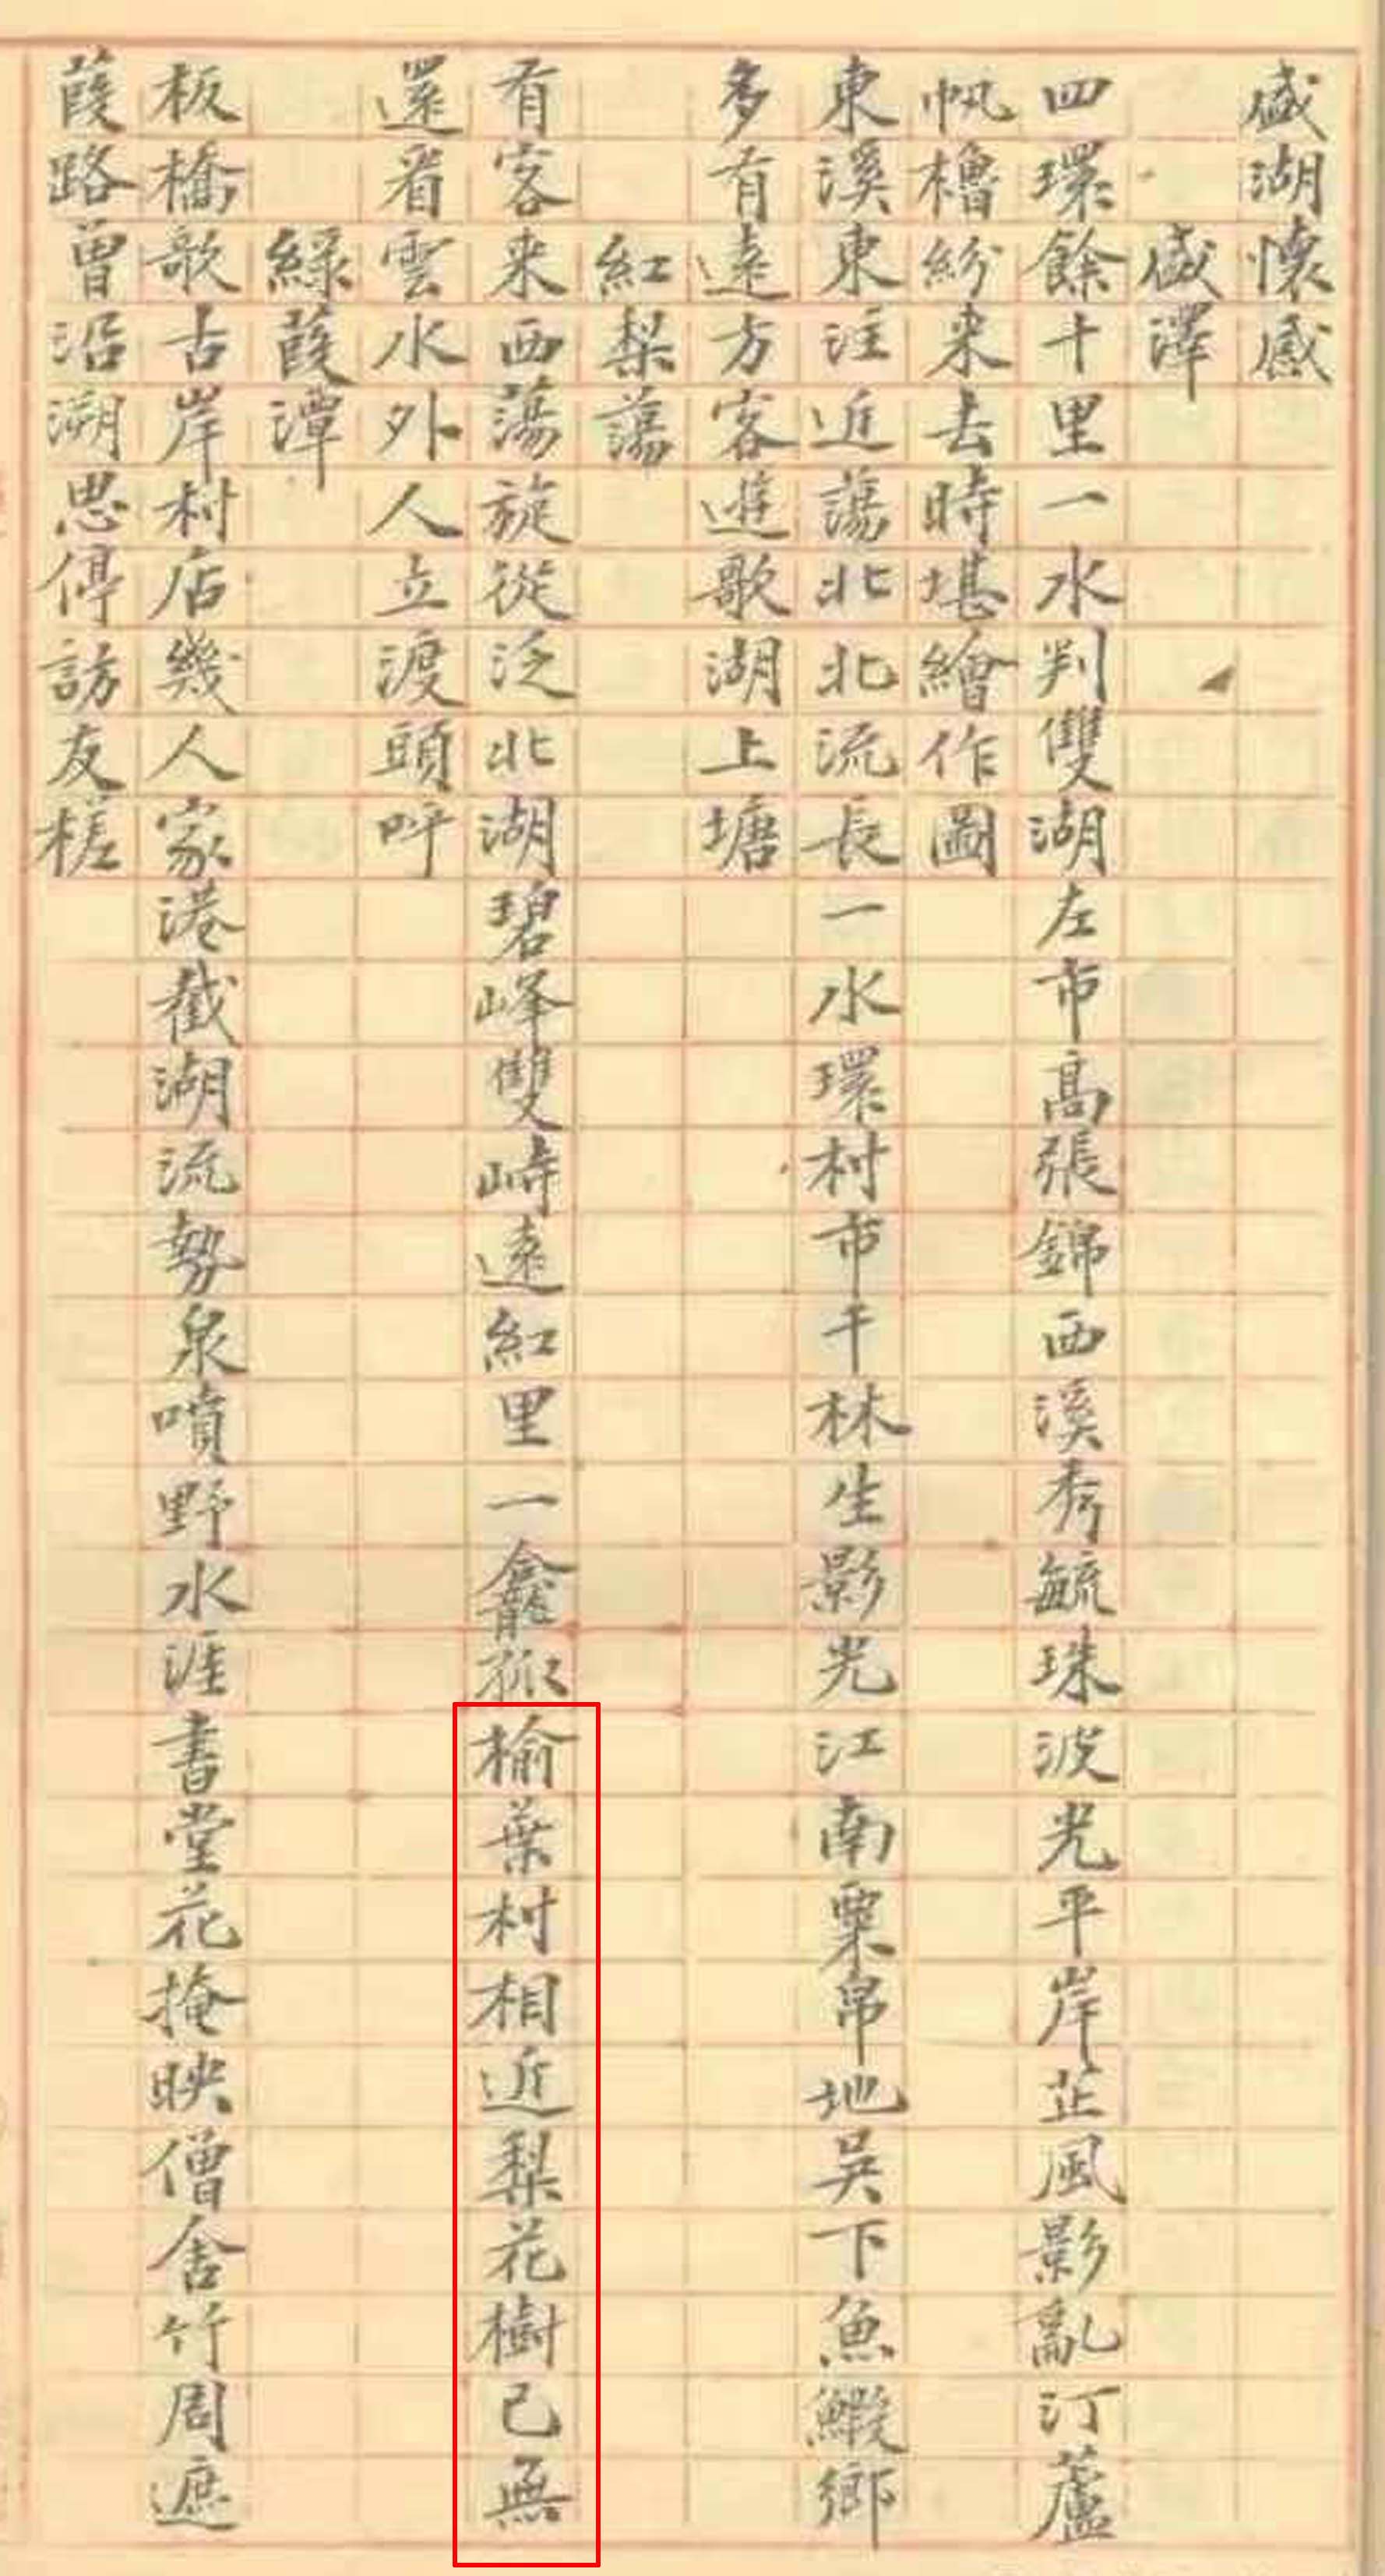 盛湖懷感
盛澤
四環餘十里一水判雙湖左市高張錦西溪秀毓珠波光平岸芷風影亂汀蘆
帆櫓紛来去時堪繪作圖
東溪東注近蕩北北流長一水環村市千林生影光江南粟帛地吴下魚鰕鄉
多有遠方客進歌湖上塘
紅梨蕩
有客来西蕩旋從泛北湖碧峰雙峙遠紅里一龕孤榆葉村相近梨花樹已無
還看雲水外人立渡頭呼
綠葭潭
板橋歌古岸村店幾人家港截湖流勢泉噴野水涯書堂花掩映僧舍竹周遮
葭路曾沿溯思停訪友槎